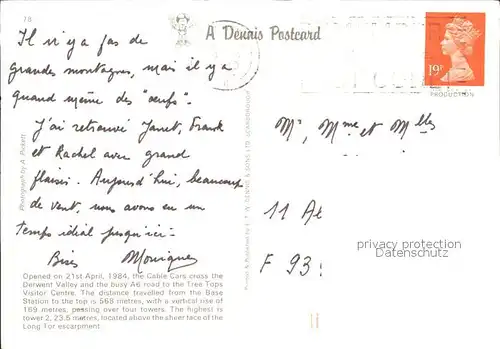 78
A Dennis Postcard
19P
PRODUCTION
Il n'y a pas de
grandes montagnes, mais il y a
quand même des "oeufs".
J'ai retrouvé Janet, Frank
et Rachel avec grand
plaisir. Aujourd'hui, beaucoup
de vent, nous avons eu un
temps idial jusqu'ici.
Bises Monique
Mr, Mme et Mlles
11 Al
F 93
privacy protection
Datenschutz
Photograph by A. Pickett
Opened on 21st April, 1984, the Cable Cars cross the
Derwent Valley and the busy A6 road to the Tree Tops
Visitor Centre. The distance travelled from the Base
Station to the top is 568 metres, with a vertical rise of
169 metres, passing over four towers. The highest is
tower 2, 23.5 metres, located above the sheer face of the
Long Tor escarpment.